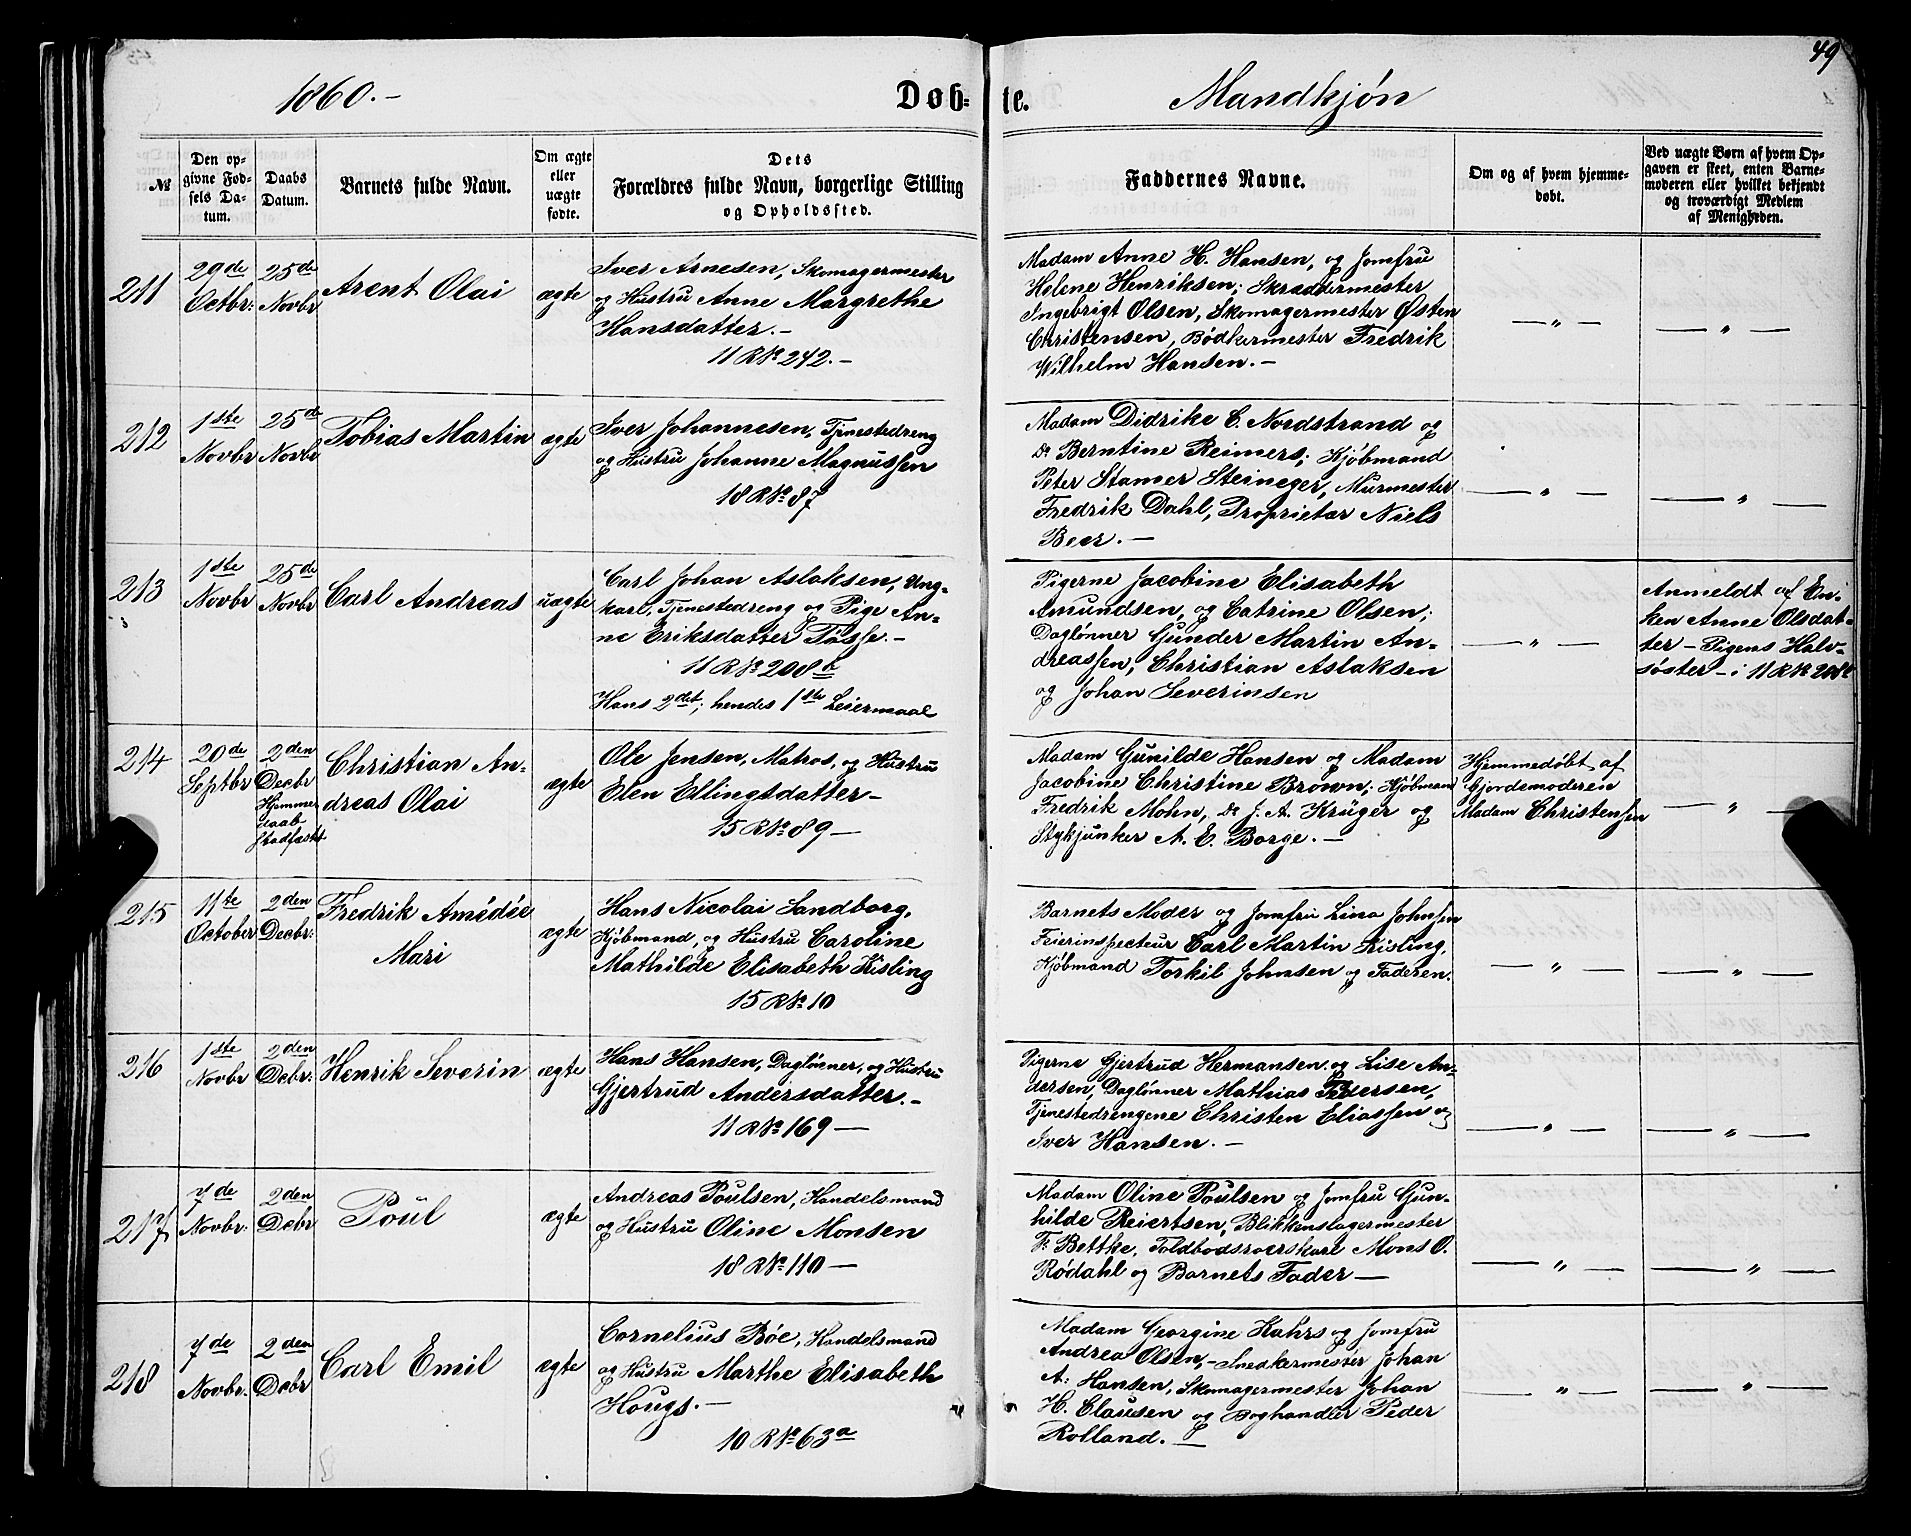 49
1860.-
Døb-te.
Mandkjøn
№
Den op-
givne Fød-
sels Da-
tum.
Daabs
Datum.
Barnets fulde Navn.
Om ægte
eller
uægte
fødte.
Dets
Forældres fulde Navn, borgerlige Stilling
og Opholdssted.
Faddernes Navne.
Om og af hvem hjemme-
døbt.
Ved uægte Børn af hvem Op-
gaven er skeet, enten Barne-
moderen eller hvilket bekjendt
og troværdigt Medlem
af Menigheden.
211
29de
Octbr:
25de
Novbr
Arent Olai
ægte
Iver Arnesen, Skomagermester
og Hustru Anne Margrethe
Hansdatter.-
11 R № 242.-
Madam Anne H. Hansen, og Jomfru
Helene Henriksen; Skræddermester
Ingebrigt Olsen, Skomagermester Østen
Christensen, Bødkermester Fredrik
Wilhelm Hansen.-
— " —
— " —
212
1ste
Novbr
25de
Novbr
Tobias Martin
ægte
Iver Johannesen, Tjenestedreng
og Hustru Johanne Magnussen
18 R № 87
Madam Didrike C. Nordstrand og
Do Berntine Reimers; Kjøbmand
Peter Stamer Steineger, Murmester
Fredrik Dahl, Proprietær Niels
Beer.-
— " —
— " —
213
1ste
Novbr
25de
Novbr
Carl Andreas
uægte
Carl Johan Aslaksen, Ung-
karl, Tjenestedreng og Pige An-
ne Eriksdatter Tosse.-
11 R № 208b
Hans 2det; hendes 1ste Leiermaal
Pigerne Jacobine Elisabeth
Amundsen, og Catrine Olsen;
Daglønner Gunder Martin An-
dreassen, Christian Aslaksen
og Johan Severinsen
— " —
Anmeldt af En-
ken Anne Olsdat-
ter - Pigens Halv-
søster - i 11 R № 208b
214
20de
Septbr
2den
Decbr
Hjemme
daab
stadfæstet
Christian An-
dreas Olai
ægte
Ole Jensen, Matros, og Hustru
Elen Ellingsdatter-
15 R № 89 —
Madam Gunilde Hansen og Madam
Jacobine Christine Brown; Kjøbmand
Fredrik Mohn, Do J. A. Krüger og
Stykjunker A. E. Borge.-
Hjemmedøbt af
Gjordemoderen
Madam Christensen
— " —
215
11te
October
2den
Decbr:
Fredrik Amédée
Mari
ægte
Hans Nicolai Sandborg,
Kjøbmand, og Hustru Caroline
Mathilde Elisabeth Kisling
15 R № 10
Barnets Moder og Jomfru Lina Johnsen
Feierinspecteur Carl Martin Kisling,
Kjøbmand Torkil Johnsen og Faderen.
— " —
— " —
216
1ste
Novbr
2den
Dcbr:
Henrik Severin
ægte
Hans Hansen, Daglønner, og Hustru
Gjertrud Andersdatter.-
11 R № 169 —
Pigerne Gjertrud Hermansen og Lise An-
dersen, Daglønner Mathias Pedersen,
Tjenestedrengene Christen Eliassen og
Iver Hansen.-
— " —
— " —
217
7de
Novbr:
2den
Dcbr
Poul
ægte
Andreas Poulsen, Handelsmand
og Hustru Oline Monsen
18 R № 110 —
Madam Oline Poulsen og Jomfru Gun-
hilde Reiertsen, Blikkenslagermester
Fr Bettke, Toldbodsroerskarl Mons O.
Rødahl og Barnets Fader —
— " —
— " —
218
7de
Novbr.
2den
Dcbr
Carl Emil
ægte
Cornelius Bøe, Handelsmand
og Hustru Marthe Elisabeth
Hougs.-
10 R № 63a
Madam Georgine Kahrs og Jomfru
Andrea Olsen,- Snedkermester Johan
A: Hansen, Skomagermester Johan
H. Clausen og Boghandler Peder
Rolland.-
— " —
— " —